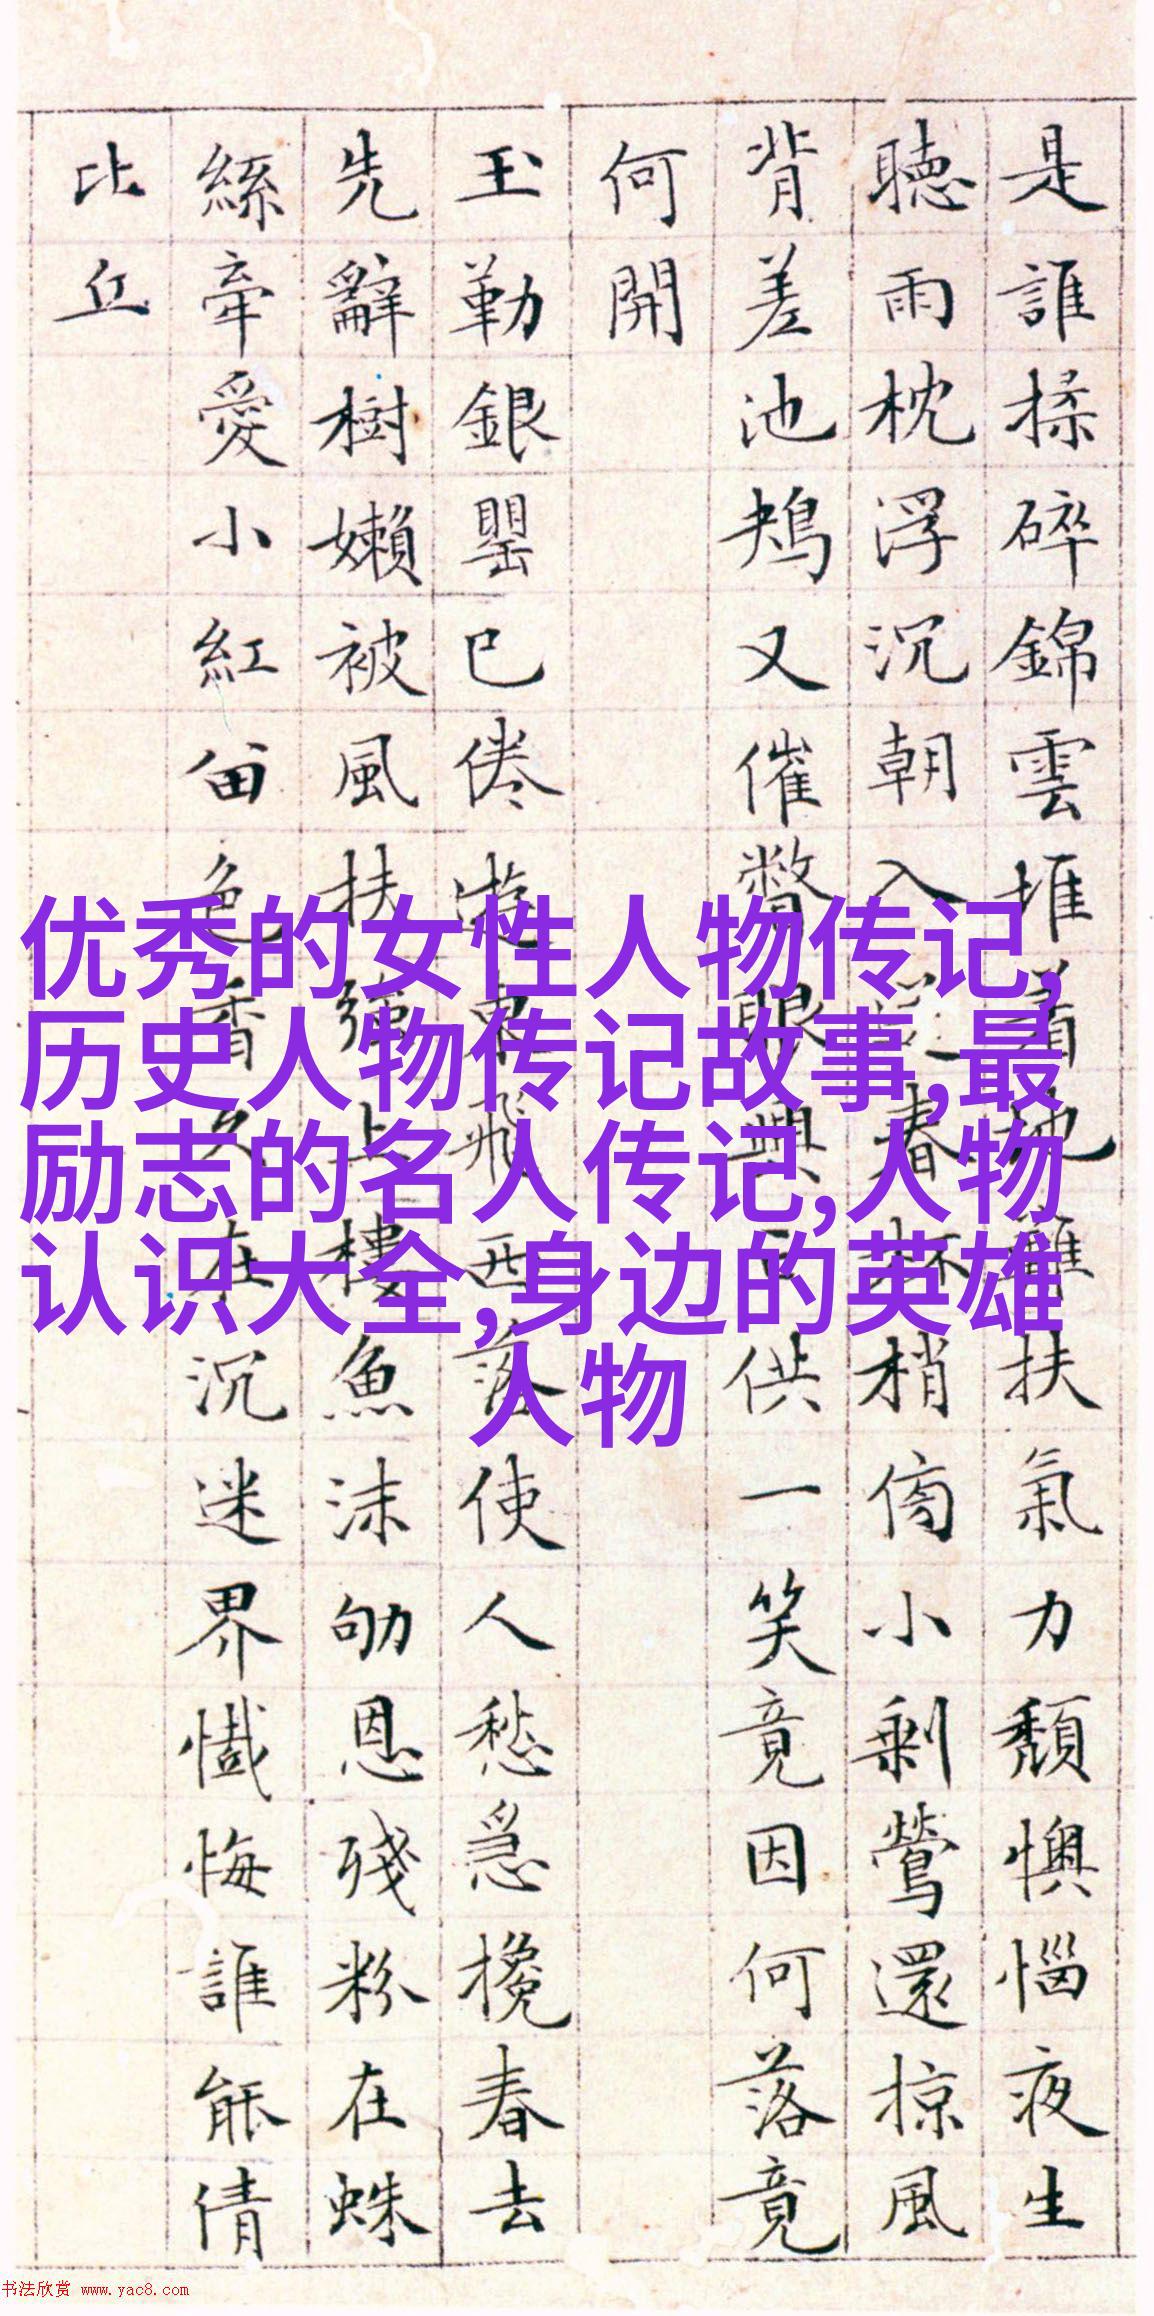 是誰揉碎錦雲堆着地難扶氣力頹懊惱夜生
聽雨枕浮沉朝入送春杯梢傍小剩鶯還掠風
背差池鴂又催瞥眼興亡供一笑竟因何落竟
何開
玉勒銀罌已倦遊東飛西落使人愁急攙春去
先辭樹嬾被風扶強上樓魚沫劬恩殘粉在蛛
絲牽愛小紅留色香久在沉迷界懺悔誰能倩
比丘
优秀的女性人物传记,
历史人物传记故事,最
励志的名人传记,人物
认识大全,身边的英雄
人物
书法欣赏 www.yac8.com